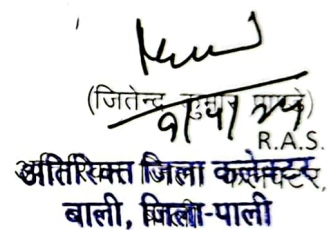 (जितेन्द्र कुमार
9/4/24
R.A.S.
अतिरिक्त जिला कलेक्टर,
बाली, जिला-पाली